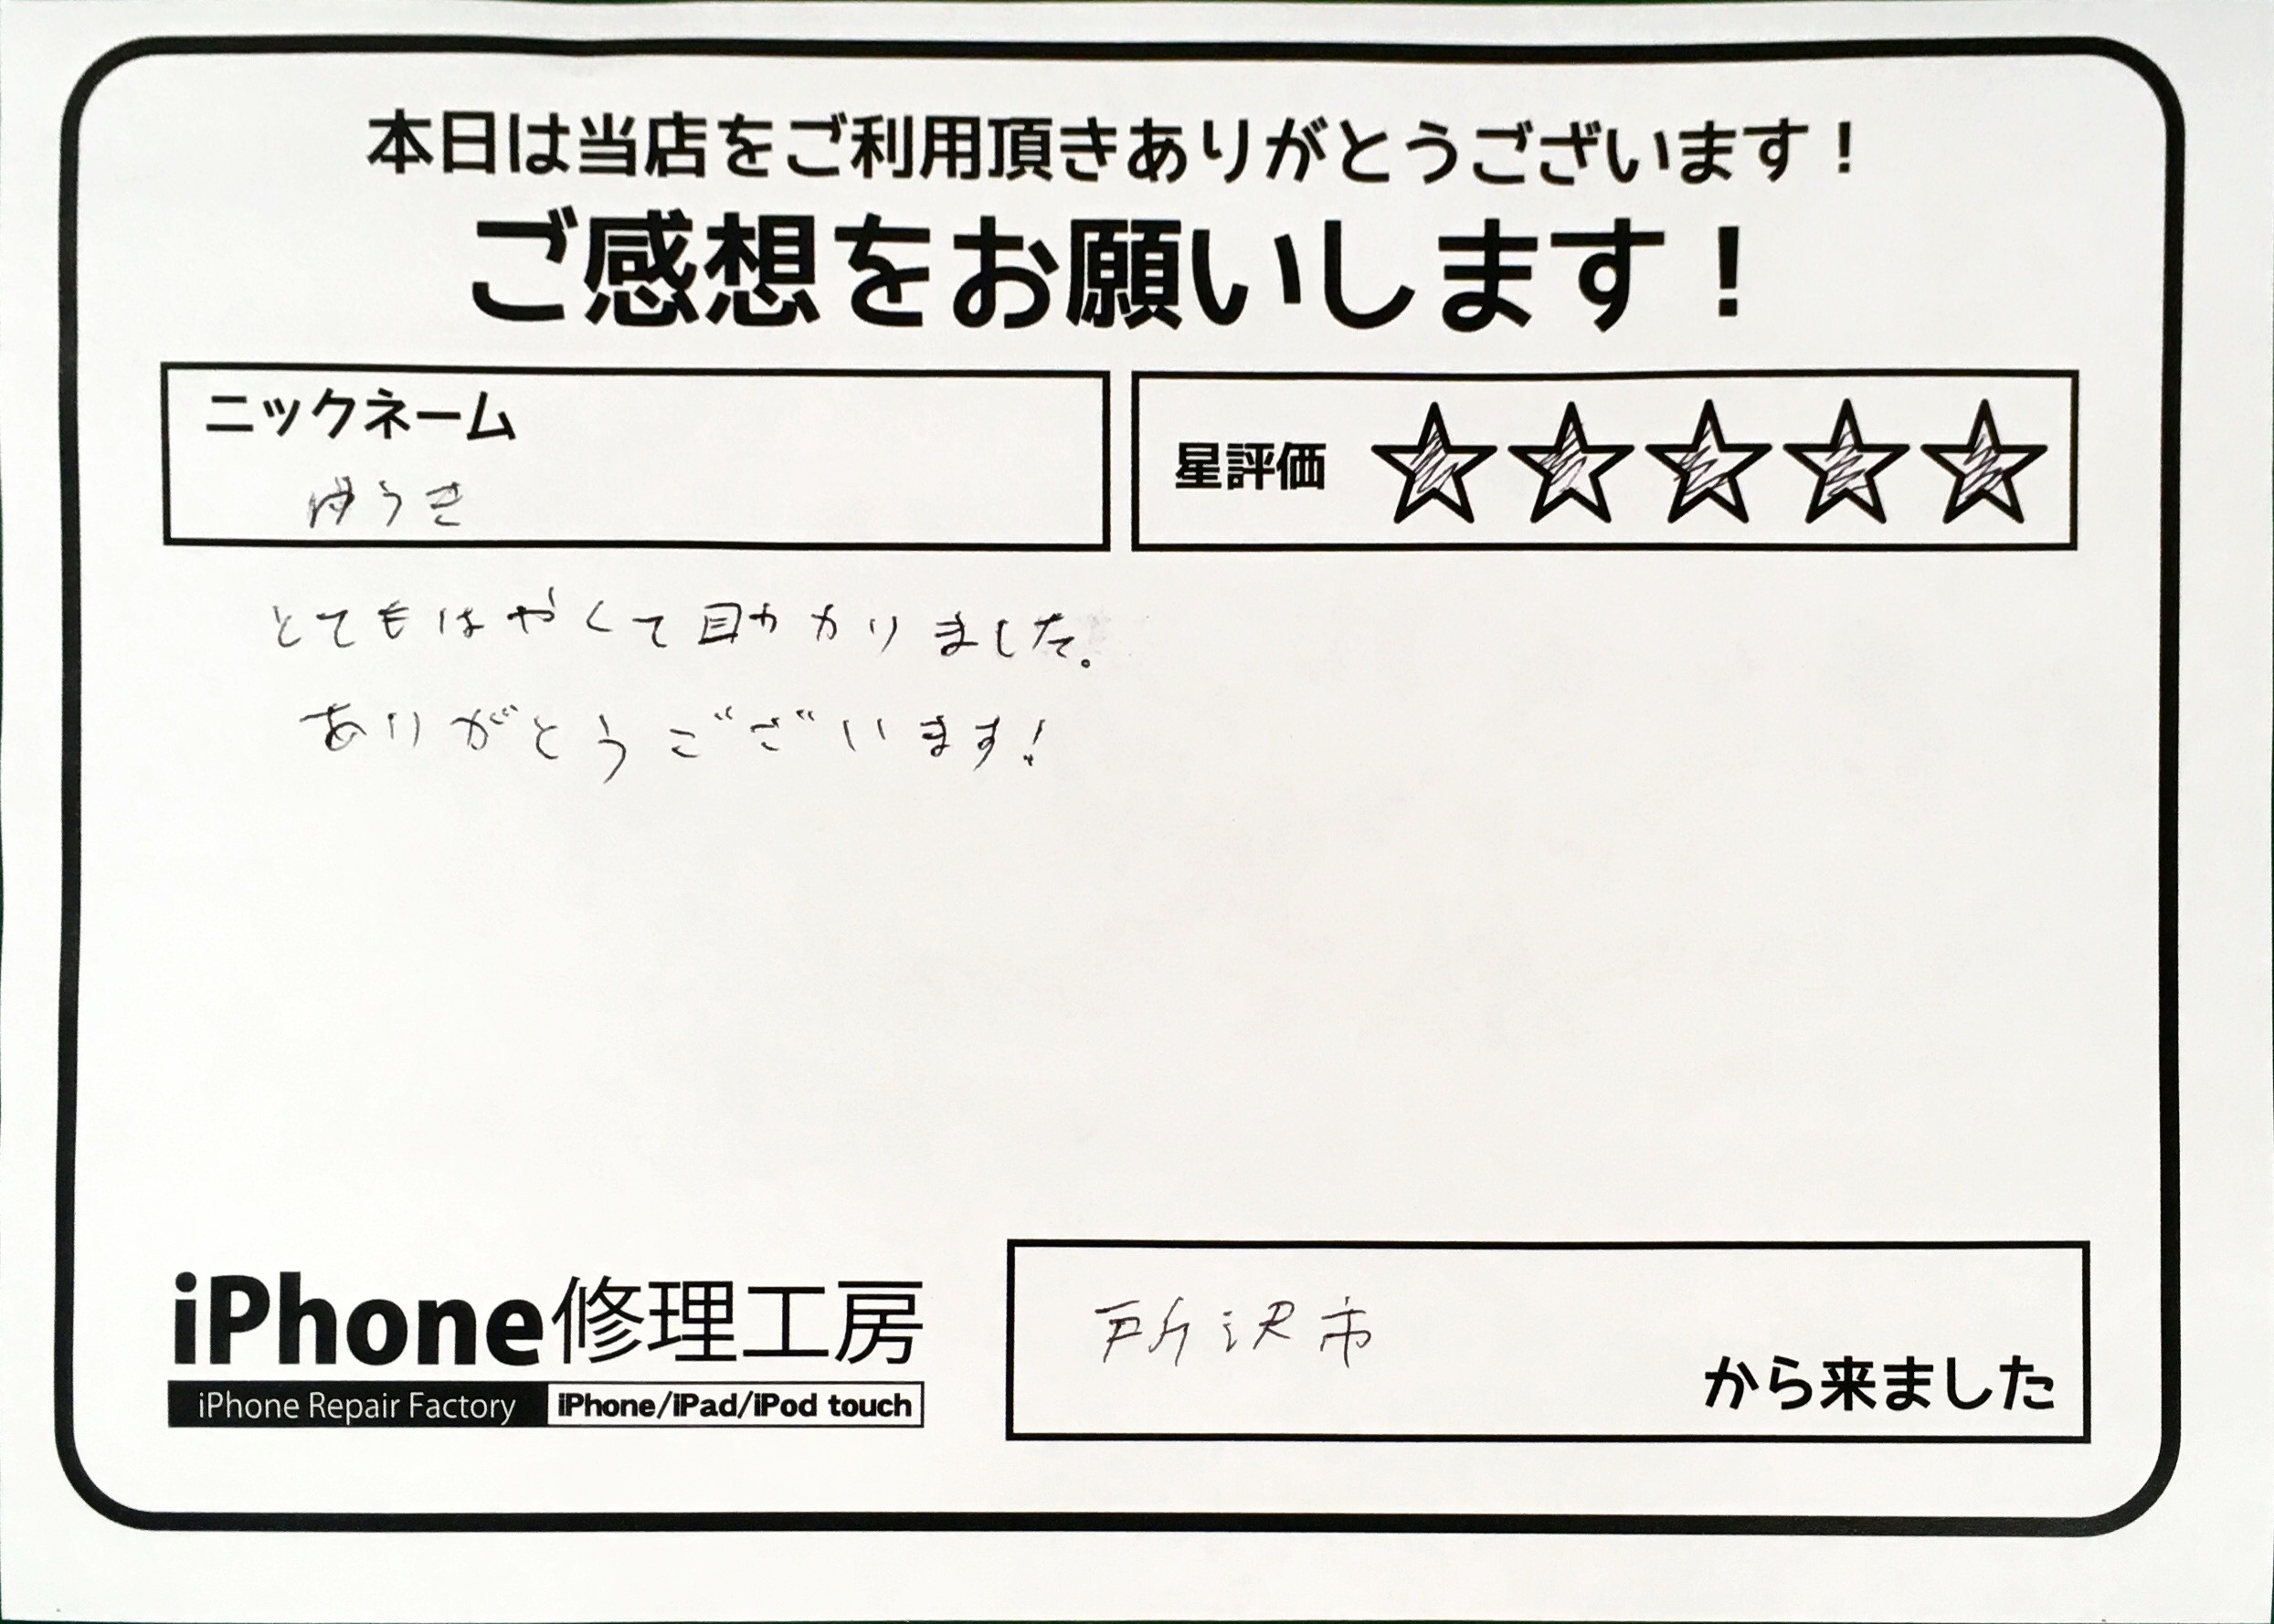 本日は当店をご利用頂きありがとうございます！
ご感想をお願いします！
ニックネーム
ゆうき
星評価
とてもはやくて助かりました。
ありがとうございます!
iPhone修理工房
iPhone Repair Factory iPhone/iPad/iPod touch
所沢市
から来ました